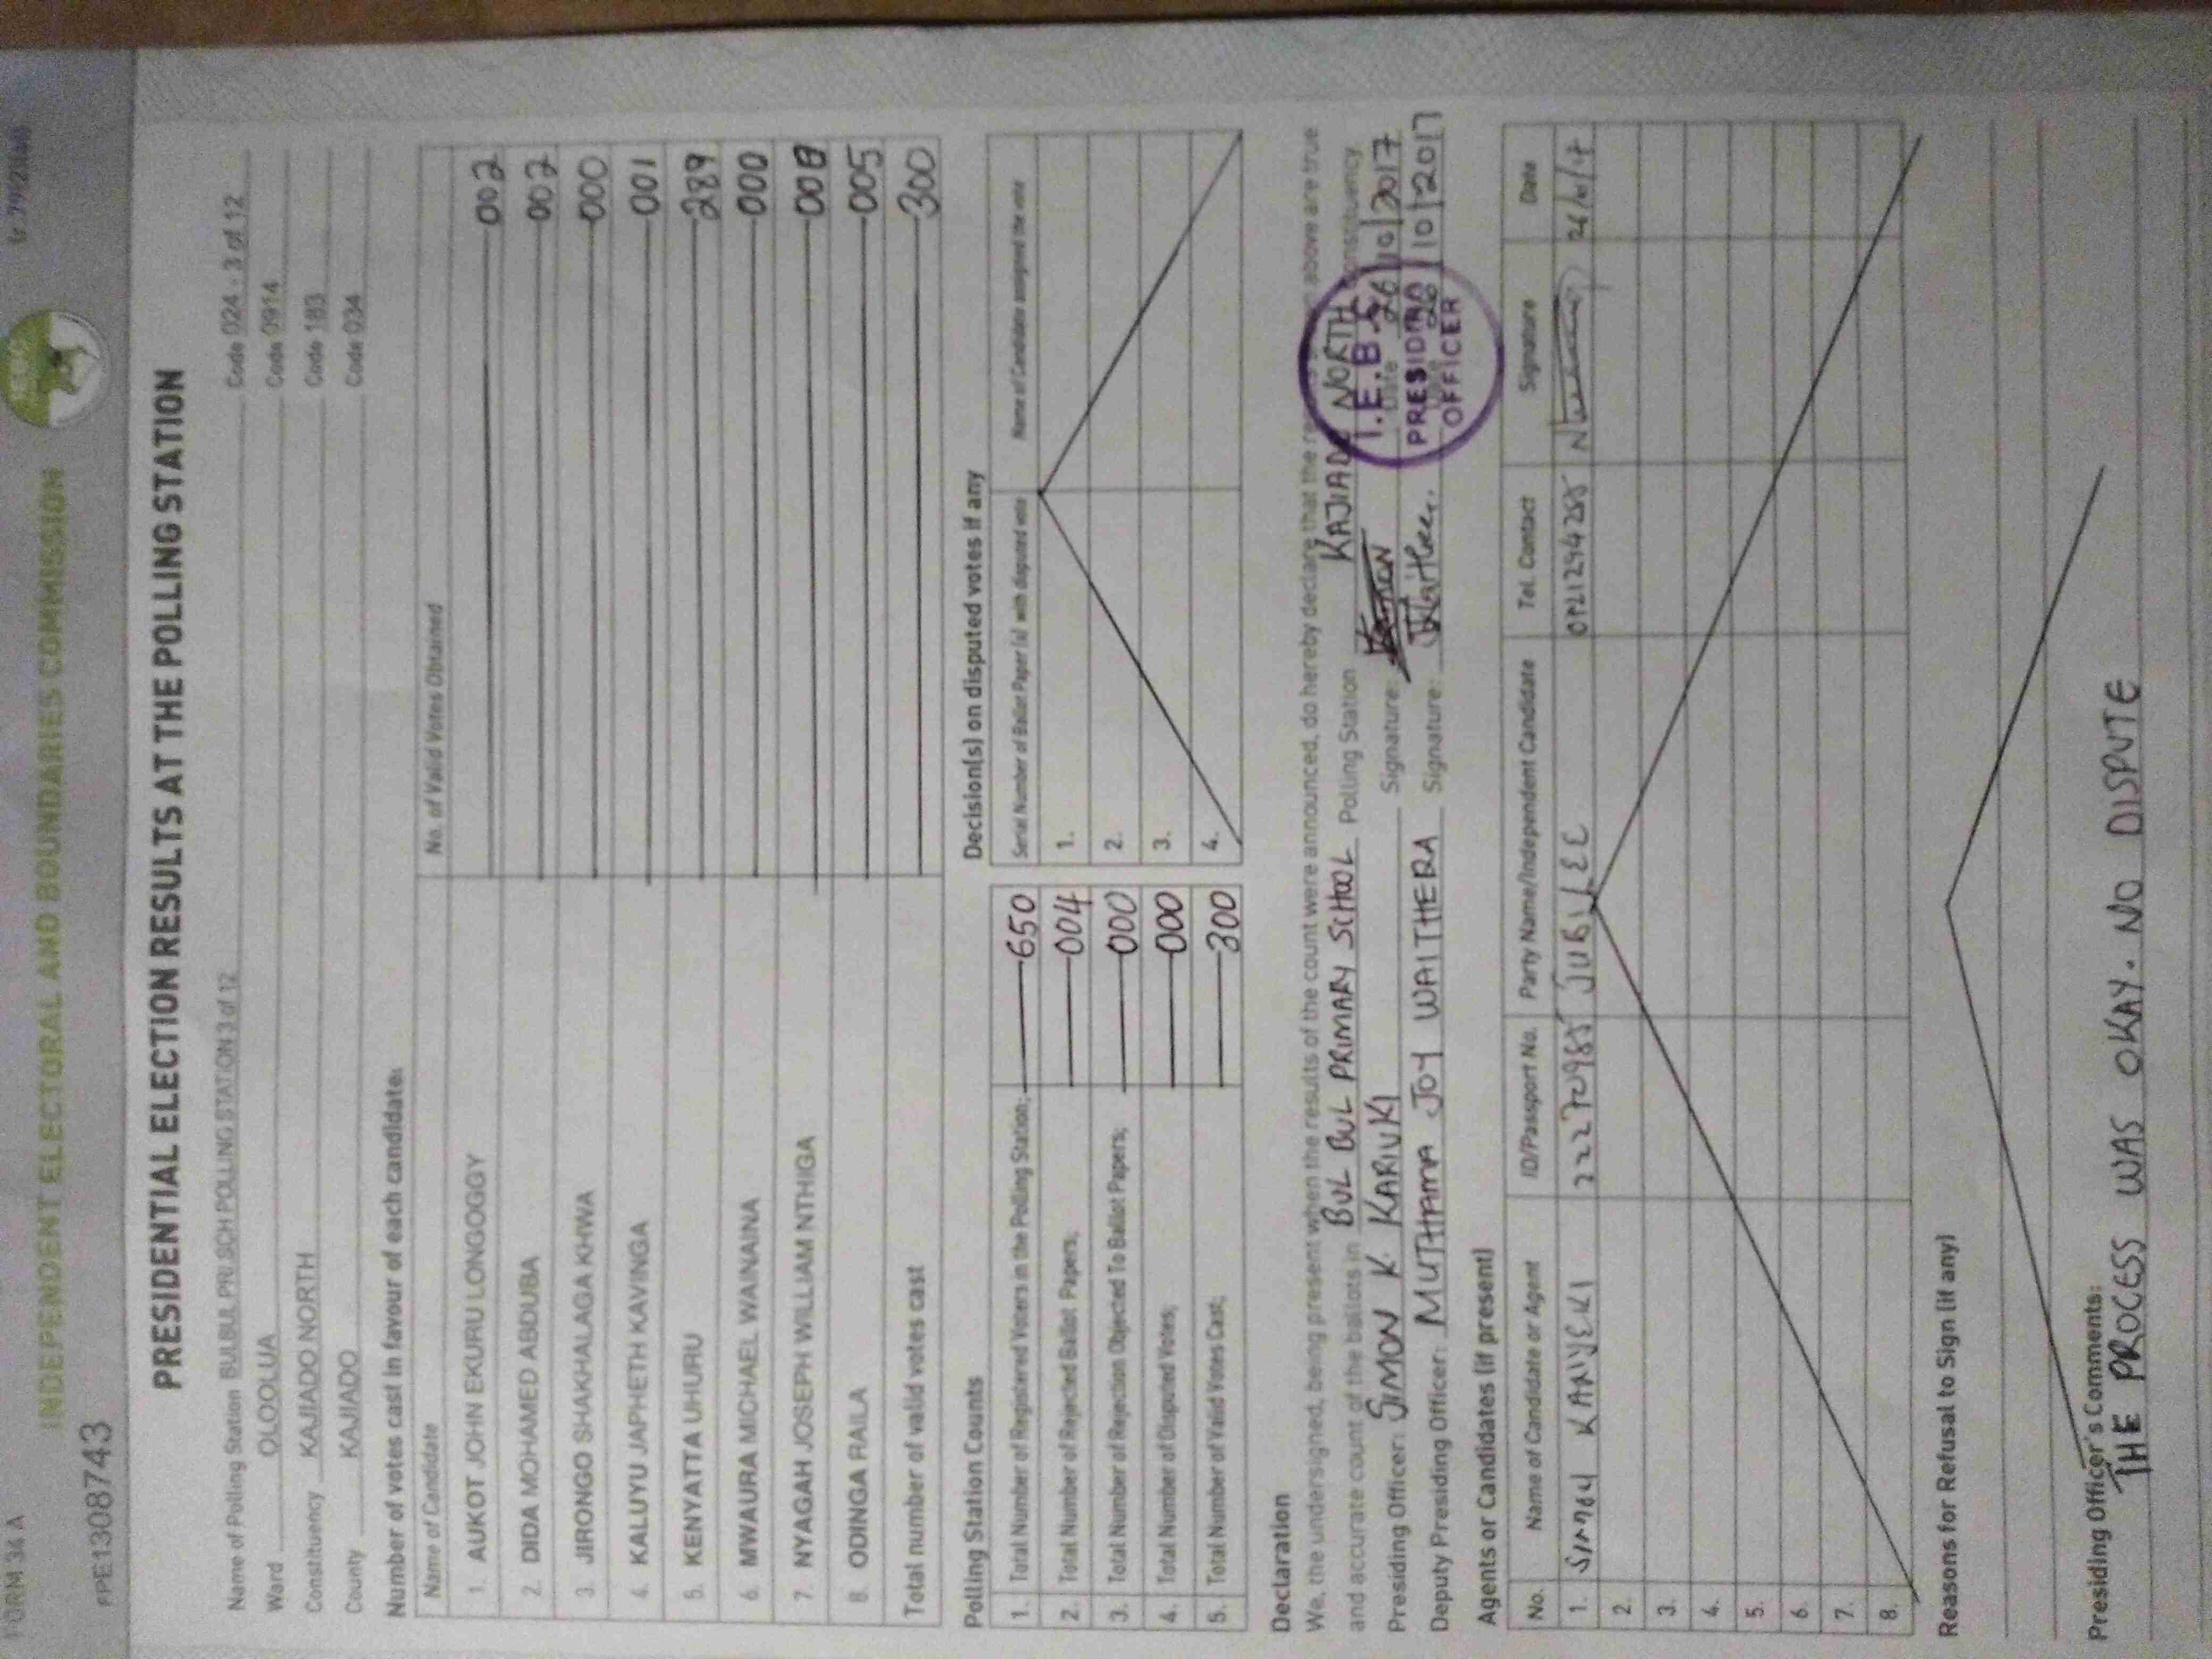 FORM 34 A
INDEPENDENT ELECTORAL AND BOUNDARIES COMMISSION
FPE1308743
PRESIDENTIAL ELECTION RESULTS AT THE POLLING STATION
Name of Polling Station BULBUL PRI SCH POLLING STATION 3 of 12 Code 024 - 3 of 12
Ward OLOOLUA Code 0914
Constituency KAJIADO NORTH Code 183
County KAJIADO Code 034
Number of votes cast in favour of each candidate:
Name of Candidate No. of Valid Votes Obtained
1. AUKOT JOHN EKURU LONGOGGY 002
2. DIDA MOHAMED ABDUBA 002
3. JIRONGO SHAKHALAGA KHWA 000
4. KALUYU JAPHETH KAVINGA 001
5. KENYATTA UHURU 289
6. MWAURA MICHAEL WAINAINA 000
7. NYAGAH JOSEPH WILLIAM NTHIGA
8. ODINGA RAILA 005
Total number of valid votes cast 300
Polling Station Counts
1. Total Number of Registered Voters in the Polling Station; 650
2. Total Number of Rejected Ballot Papers; 004
3. Total Number of Rejection Objected To Ballot Papers; 000
4. Total Number of Disputed Votes; 000
5. Total Number of Valid Votes Cast; 300
Decision(s) on disputed votes if any
Serial Number of Ballot Paper (s) with disputed vote Name of Candidate assigned the vote
1.
2.
3.
4.
Declaration
We, the undersigned, being present when the results of the count were announced, do hereby declare that the above are true
and accurate count of the ballots in BUL BUL PRIMARY SCHOOL Polling Station KAJIADO NORTH Constituency.
Presiding Officer: SIMON K. KARIUKI Signature: Date 26/10/2017
Deputy Presiding Officer: MUTHAMA JOY WAITHERA Signature: Date 26/10/2017
I.E.B.C
PRESIDING
OFFICER
Agents or Candidates (if present)
No. Name of Candidate or Agent ID/Passport No. Party Name/Independent Candidate Tel. Contact Signature Date
1. KANYEKI 222770985 JUBILEE 26/10/17
2.
3.
4.
5.
6.
7.
8.
Reasons for Refusal to Sign (if any)
Presiding Officer's Comments:
THE PROCESS WAS OKAY. NO DISPUTE